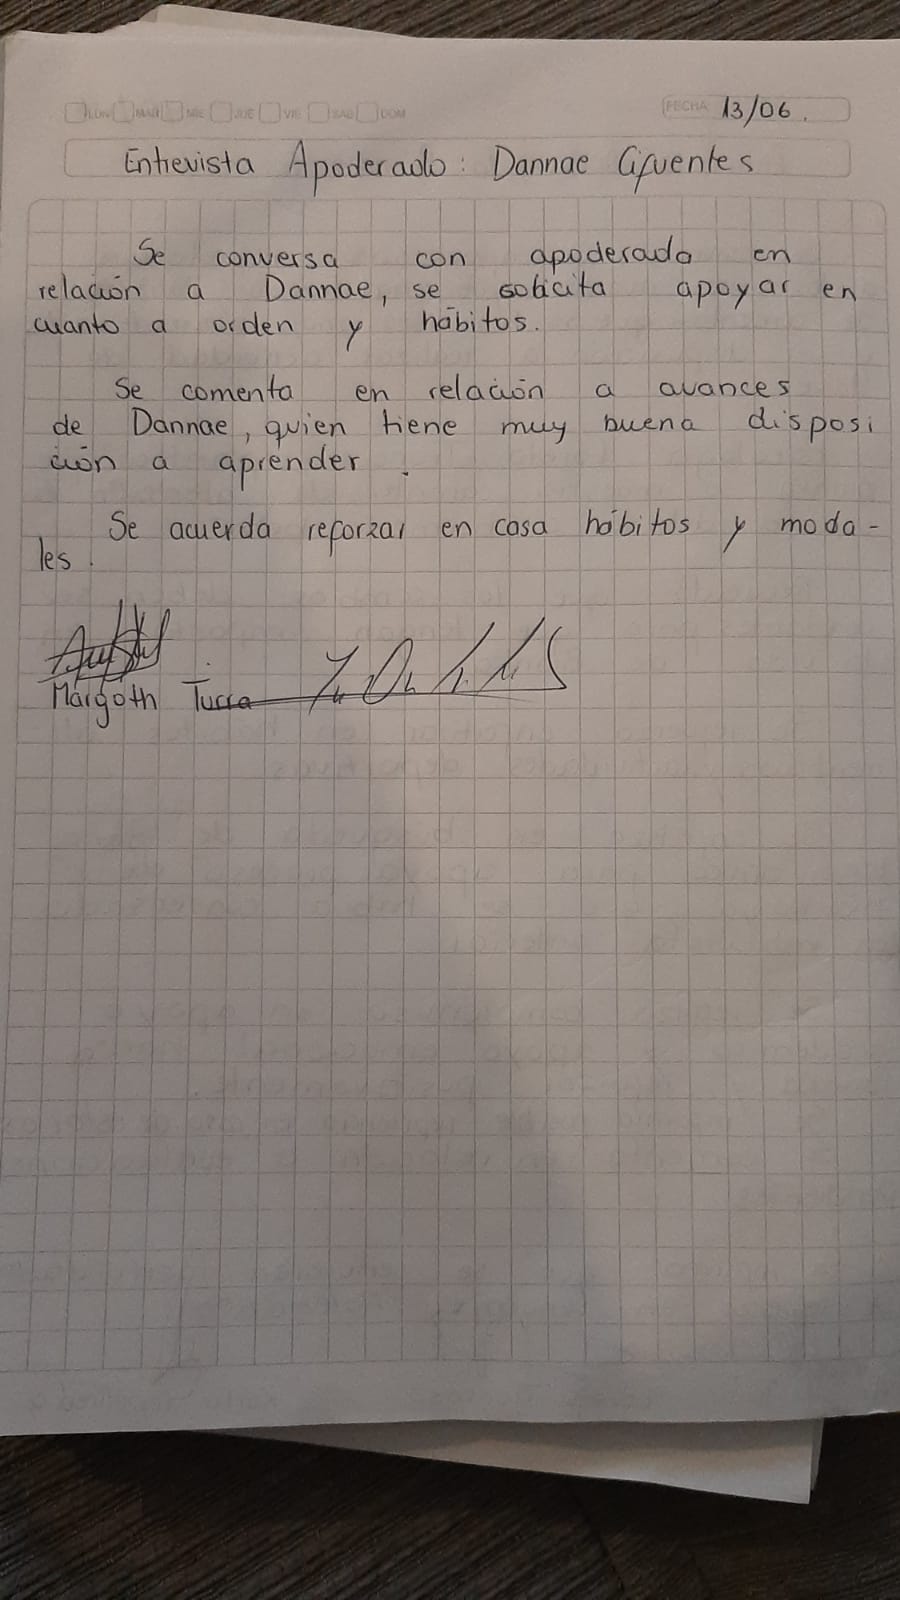 LUN MAR MIE JUE VIE SAB DOM
FECHA 13/06.
Entrevista Apoderado: Dannae Cifuentes
Se conversa con apoderada en
relación a Dannae, se solicita apoyar en
cuanto a orden y hábitos.
Se comenta en relación a avances
de Dannae, quien tiene muy buena disposi
ción a aprender.
Se acuerda reforzar en casa hábitos y moda-
les.
Margoth Turra